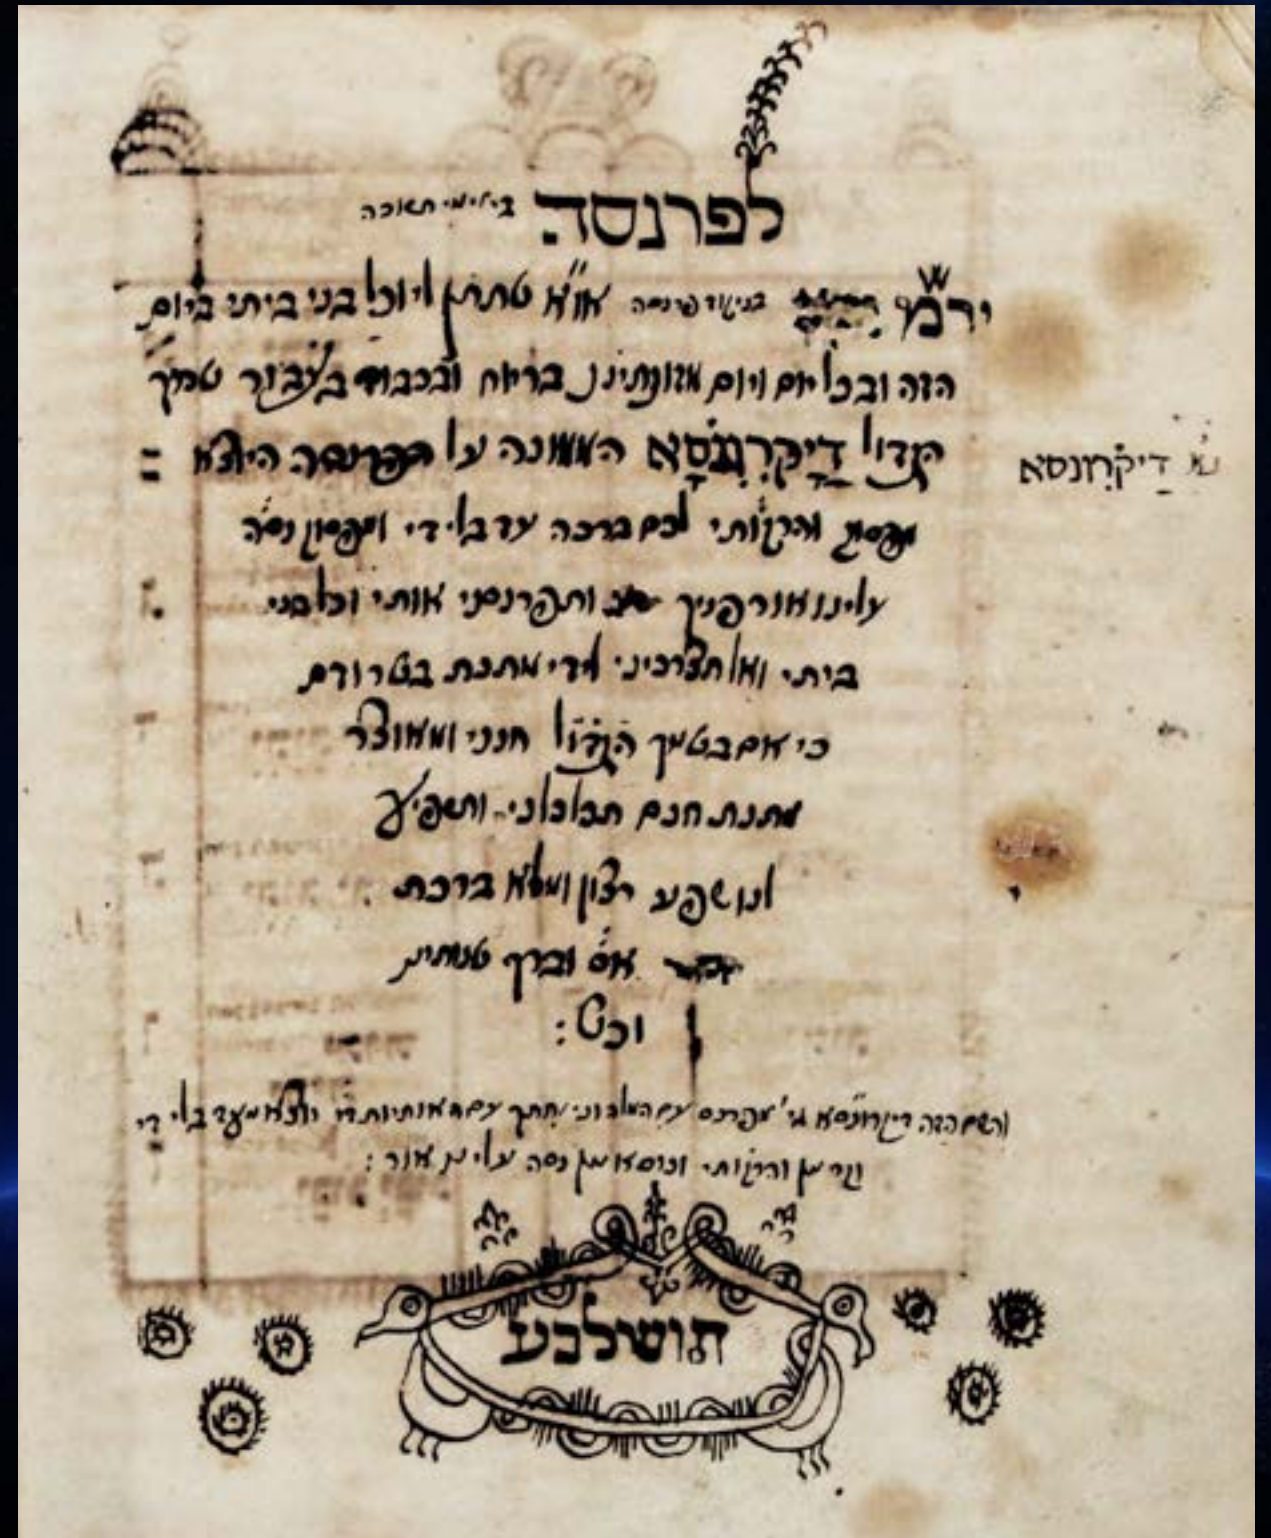 לפרנסה בי׳ ימי תשובה
ירמ״ש א״א שתתן לי וכל בני ביתי ביום
הזה ובכל יום ויום מזונותינו בריוח ובכבוד בעבור שמך
הגדול דיקרנוסא הממונה על הפרנסה היוצא
והרקותי לכם ברכה עד בלי די ומפסוק נסה
עלינו אור פניך ותפרנסני אותי וכל בני
ביתי ואל תצרכיני לידי מתנת בשר ודם
כי אם בשמך הגדול חנני ומאוצר
מתנת חנם תכלכלני ותשפיע
לנו שפע רצון ומלא ברכת
וברך שנותינו
וכט :
נ״א דיקרונסא
והשם הזה דיקרונסא גי׳ מפרנס עם המלות וגי׳ חתך עם האותיות יוצא מעד בלי די
והרקותי נסה עלינו אור :
תושלבע